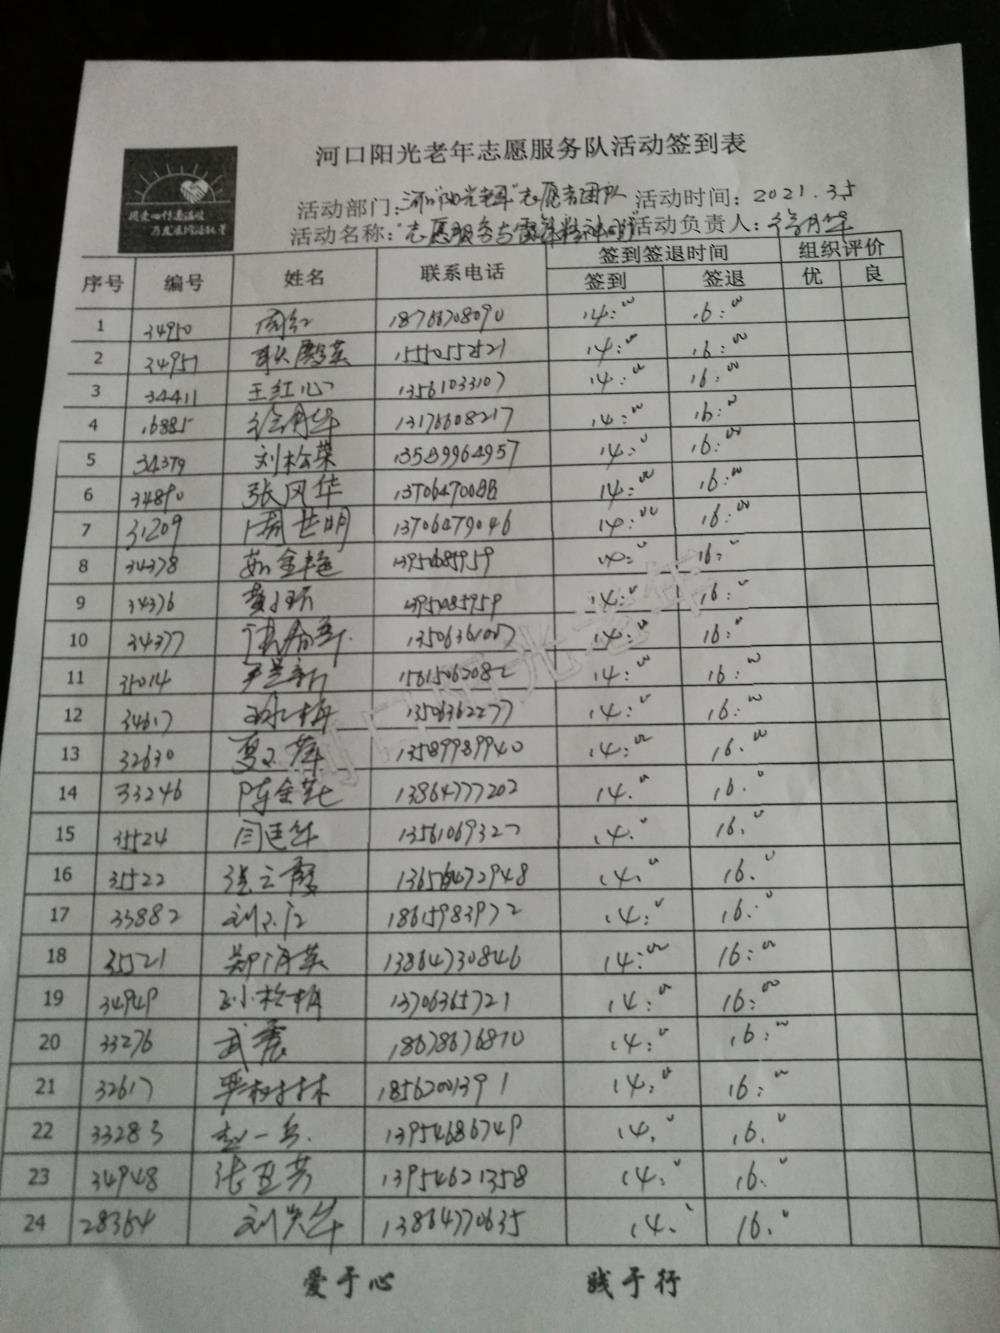 河口阳光老年志愿服务队活动签到表
活动部门：河口"阳光老年"志愿者团队 活动时间：2021.3.5
活动名称："志愿服务与雷锋精神 活动负责人：徐月华
序号 编号 姓名 联系电话 签到签退时间 组织评价
签到 签退 优 良
1 34950 周红 18766708090 14:00 16:00
2 34951 耿殿英 15510552521 14:00 16:00
3 34411 王红心 13561033107 14:00 16:00
4 16885 徐月华 13176608217 14:00 16:00
5 34379 刘松荣 13589964957 14:00 16:00
6 34890 张风华 14:00 16:00
7 31209 周世明 13706479046 14:00 16:00
8 34378 14:00 16:00
9 34376 14:00 16:00
10 34377 14:00 16:00
11 35014 尹兰新 15615062082 14:00 16:00
12 34617 13506362277 14:00 16:00
13 32630 13589989940 14:00 16:00
14 33246 陈金花 13864777202 14:00 16:00
15 35524 闫廷华 13561069327 14:00 16:00
16 35522 张云霞 14:00 16:00
17 33882 18615983972 14:00 16:00
18 35521 郑清英 13864730846 14:00 16:00
19 34949 孙松梅 13706365721 14:00 16:00
20 33276 武震 18678676870 14:00 16:00
21 32617 严树林 18562001391 14:00 16:00
22 33283 赵一兵 13954686749 14:00 16:00
23 34948 张亚芳 13954621358 14:00 16:00
24 28364 刘光华 13864770635 14:00 16:00
爱于心 践于行
河口阳光老年